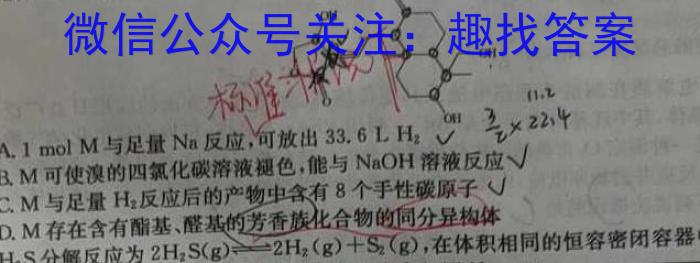 微信公众号关注：趣找答案
OH
OH
O
OH
标准状况
3/2×22.4
11.2
A. 1 mol M与足量 Na 反应,可放出 33.6 L H₂ √
B. M可使溴的四氯化碳溶液褪色,能与 NaOH 溶液反应√
C. M与足量 H₂反应后的产物中含有 8 个手性碳原子 √
D. M存在含有酯基、醛基的芳香族化合物的同分异构体
H₂S分解反应为 2H₂S(g)⇌2H₂(g)+S₂(g),在体积相同的恒容密闭容器